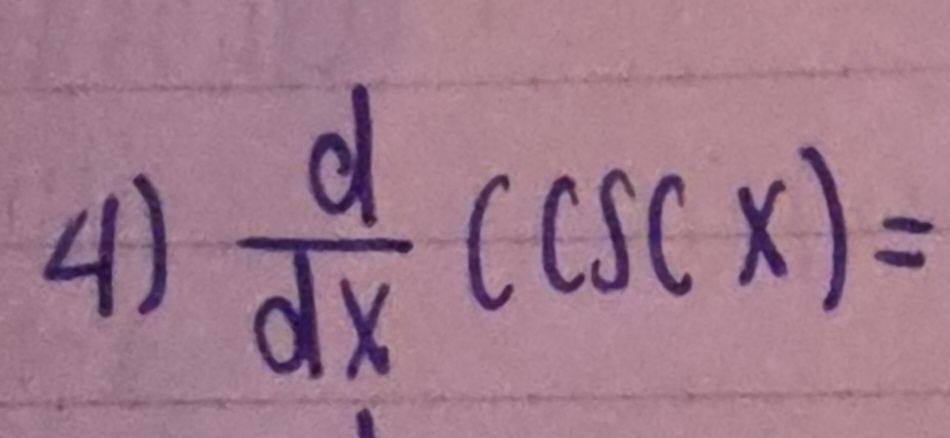 4) d/dx (csc x) =